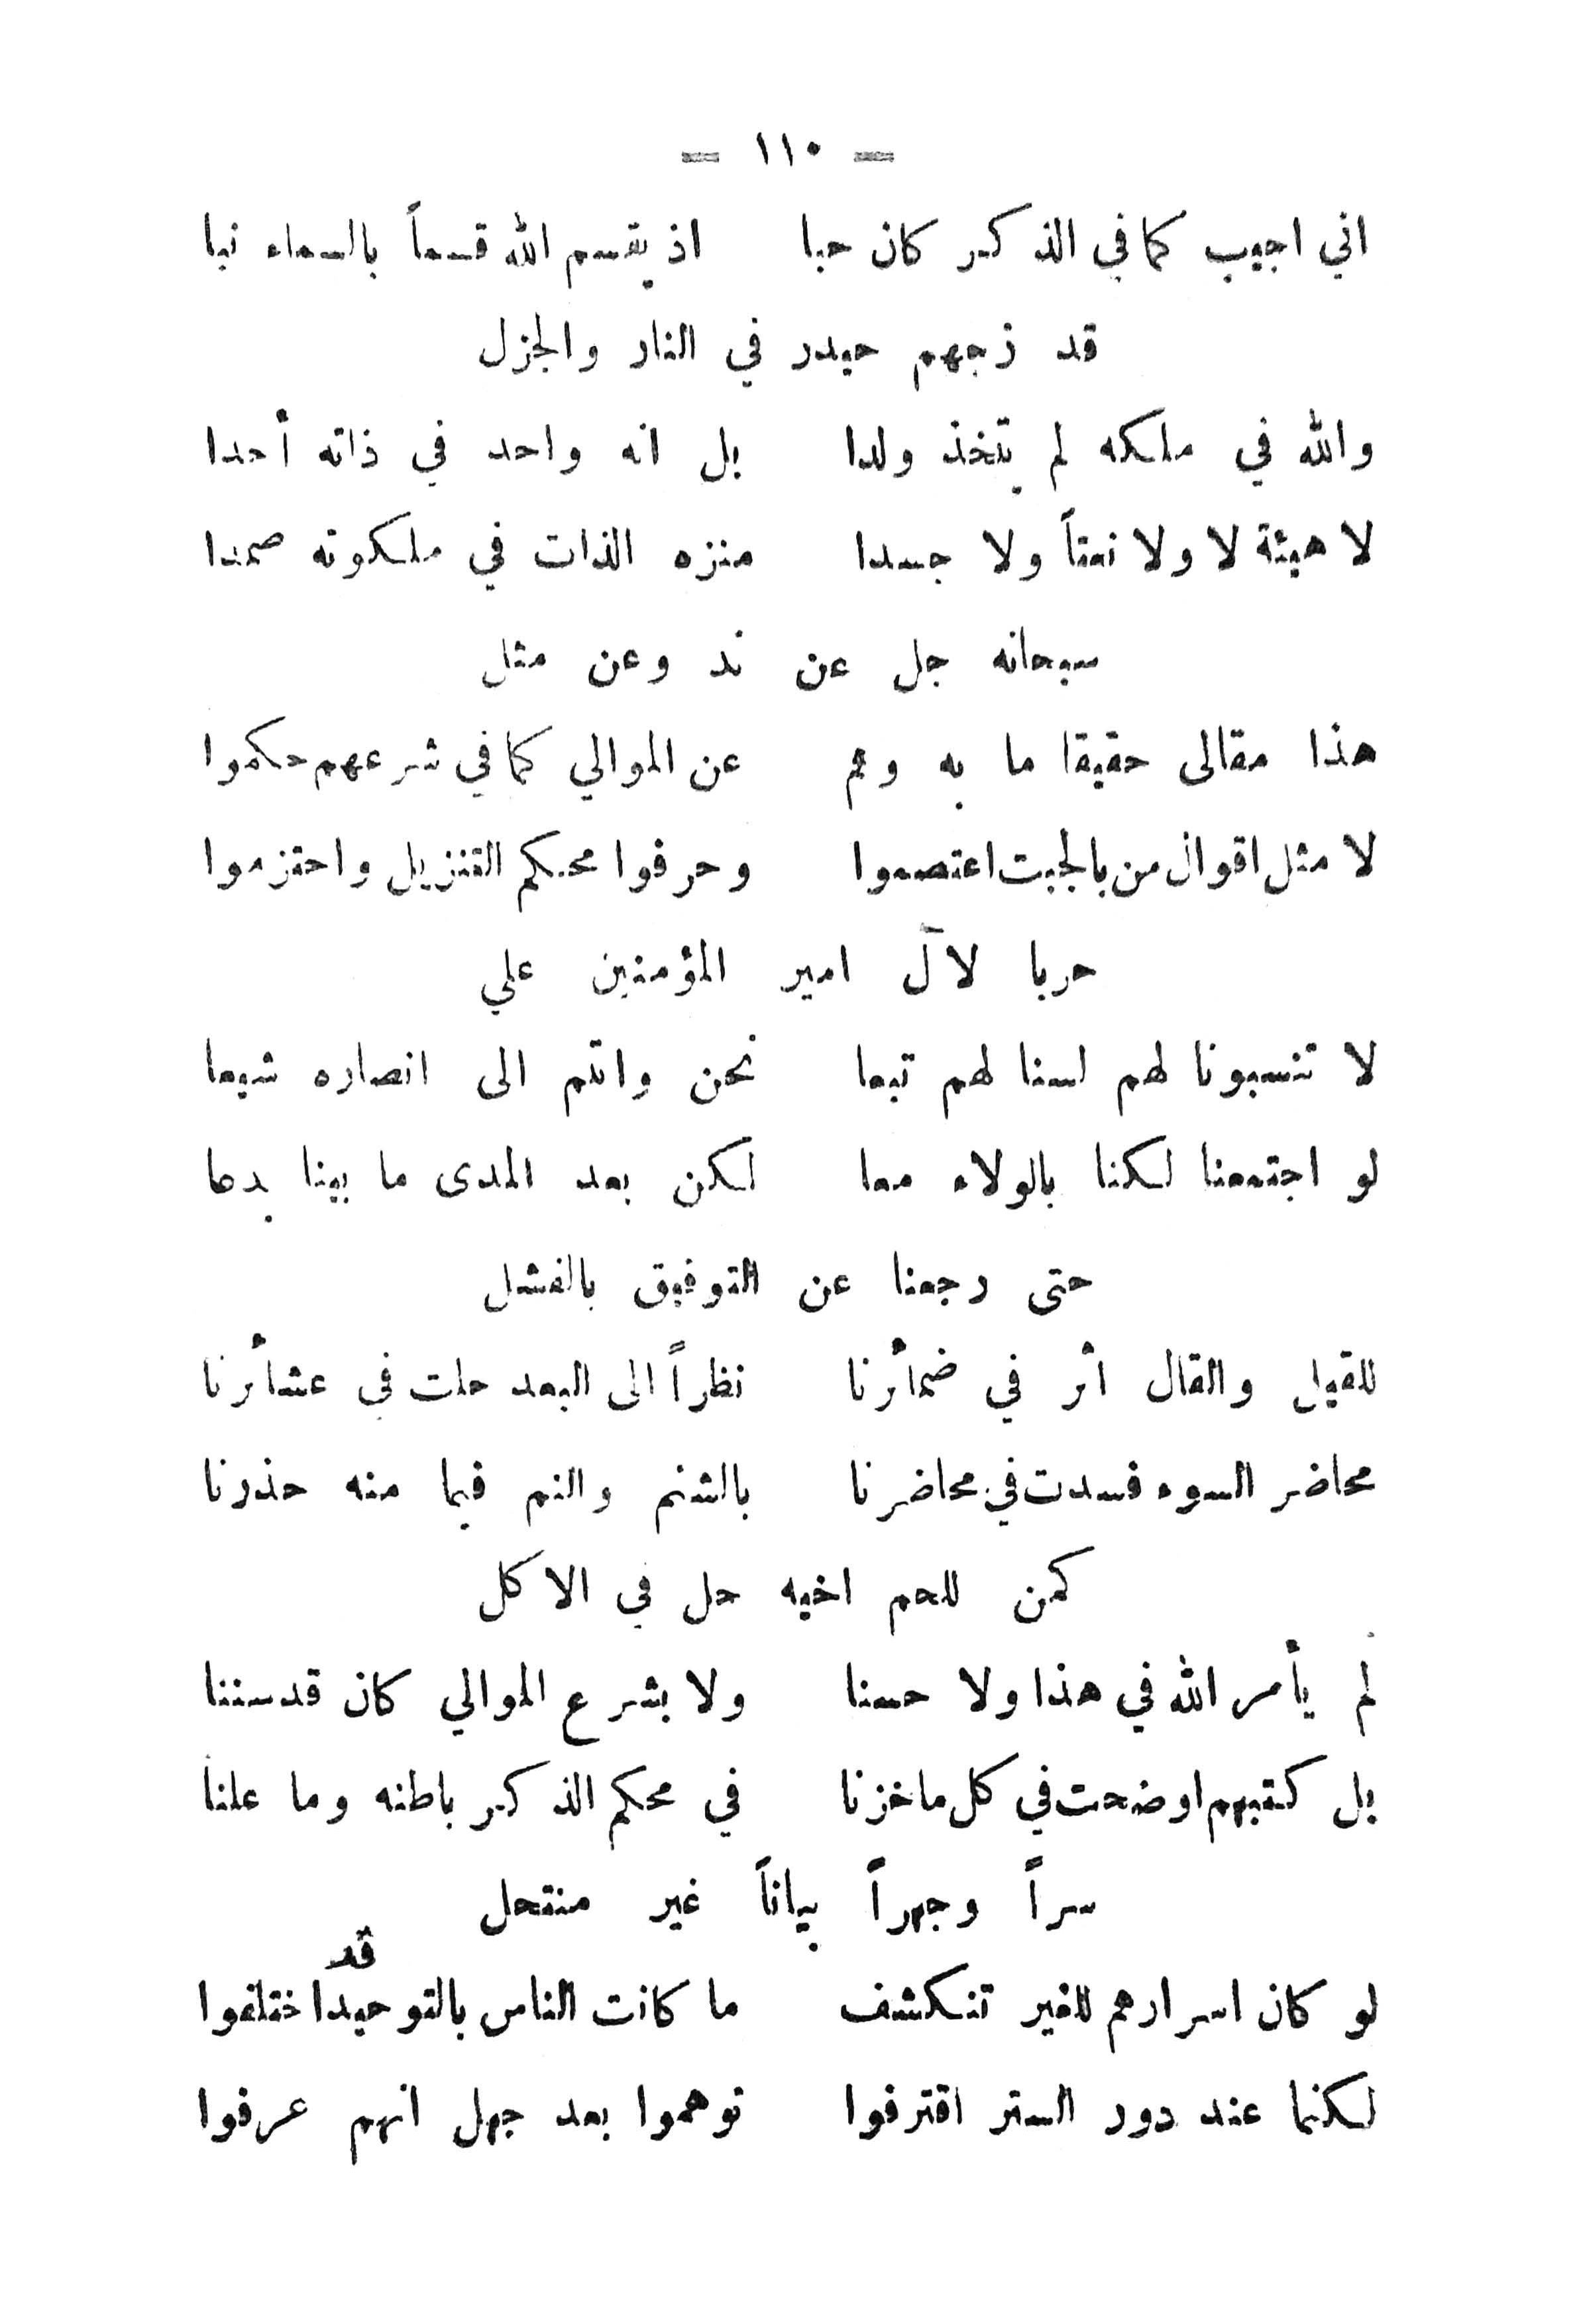 — ١١٠ —
اني اجيب كما في الذكر كان حبا اذ يقسم الله قسماً بالسماء نبا
قد زجهم حيدر في النار والجزل
والله في ملكه لم يتخذ ولدا بل انه واحد في ذاته أحدا
لا هيئة لا ولا نعتاً ولا جسدا منزه الذات في ملكوته صمدا
سبحانه جل عن ند وعن مثل
هذا مقالى حقيقا ما به وهم عن الموالي كما في شرعهم حكموا
لا مثل اقوال من بالجبت اعتصموا وحرفوا محكم التنزيل واحتزموا
حربا لآل امير المؤمنين علي
لا تنسبونا لهم لسنا لهم تبعا نحن وانتم الى انصاره شيعا
لو اجتمعنا لكنا بالولاء معا لكن بعد المدى ما بيننا بدعا
حتى رجعنا عن التوفيق بالفشل
للقيل والقال أثر في ضمأرنا نظراً الى البعد حلت في عشأرنا
محاضر السوء فسدت في محاضرنا بالشتم والنم فيما منه حذرنا
كمن للحم اخيه حل في الاكل
لم يأمر الله في هذا ولا حسنا ولا بشرع الموالي كان قد سننا
بل كتبهم اوضحت في كل ما خزنا في محكم الذكر باطنه وما علنا
سراً وجهراً بياناً غير منتحل
لو كان اسرارهم للغير تنكشف ما كانت الناس بالتوحيد قد اختلفوا
لكنما عند دور الستر اقترفوا توهموا بعد جهل انهم عرفوا